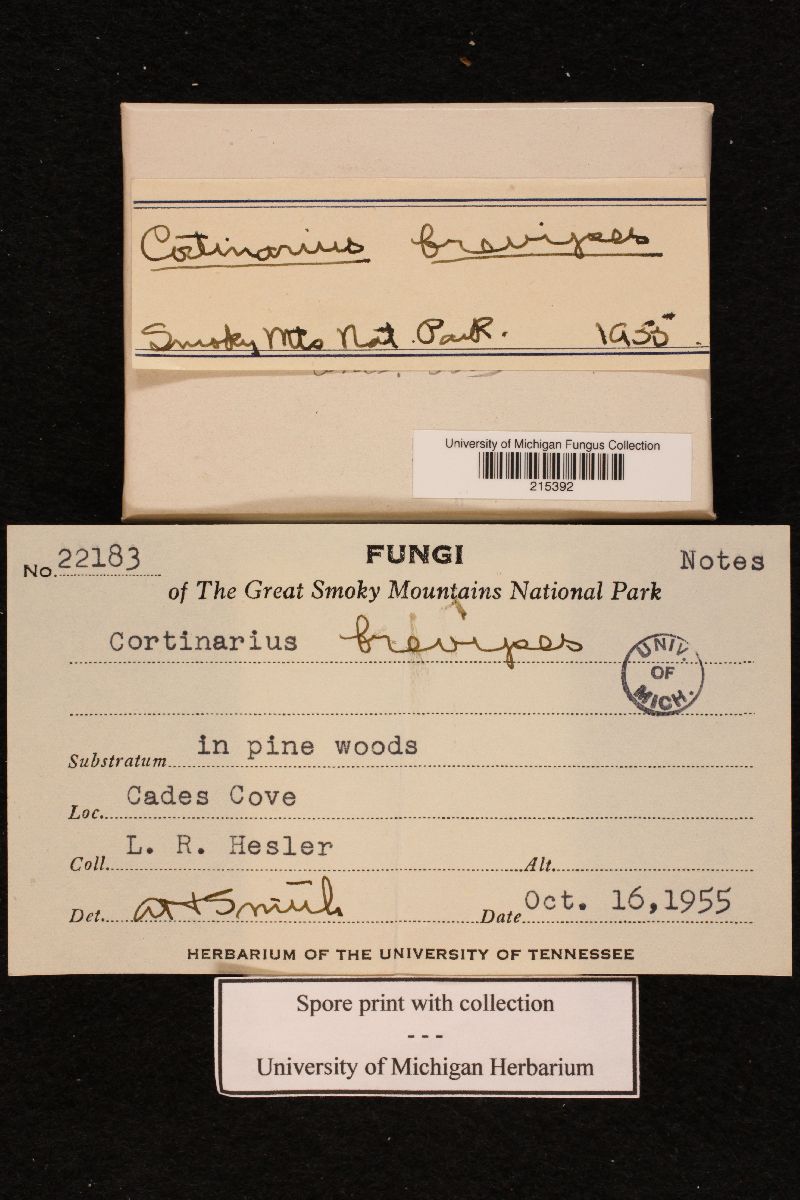 Cortinarius brevipes
Smoky Mts Nat. Park. 1955.
University of Michigan Fungus Collection
215392
No. 22183 FUNGI Notes
of The Great Smoky Mountains National Park
Cortinarius brevipes
UNIV. OF MICH.
Substratum in pine woods
Loc. Cades Cove
Coll. L. R. Hesler Alt.
Det. AH Smith Date Oct. 16, 1955
HERBARIUM OF THE UNIVERSITY OF TENNESSEE
Spore print with collection
---
University of Michigan Herbarium